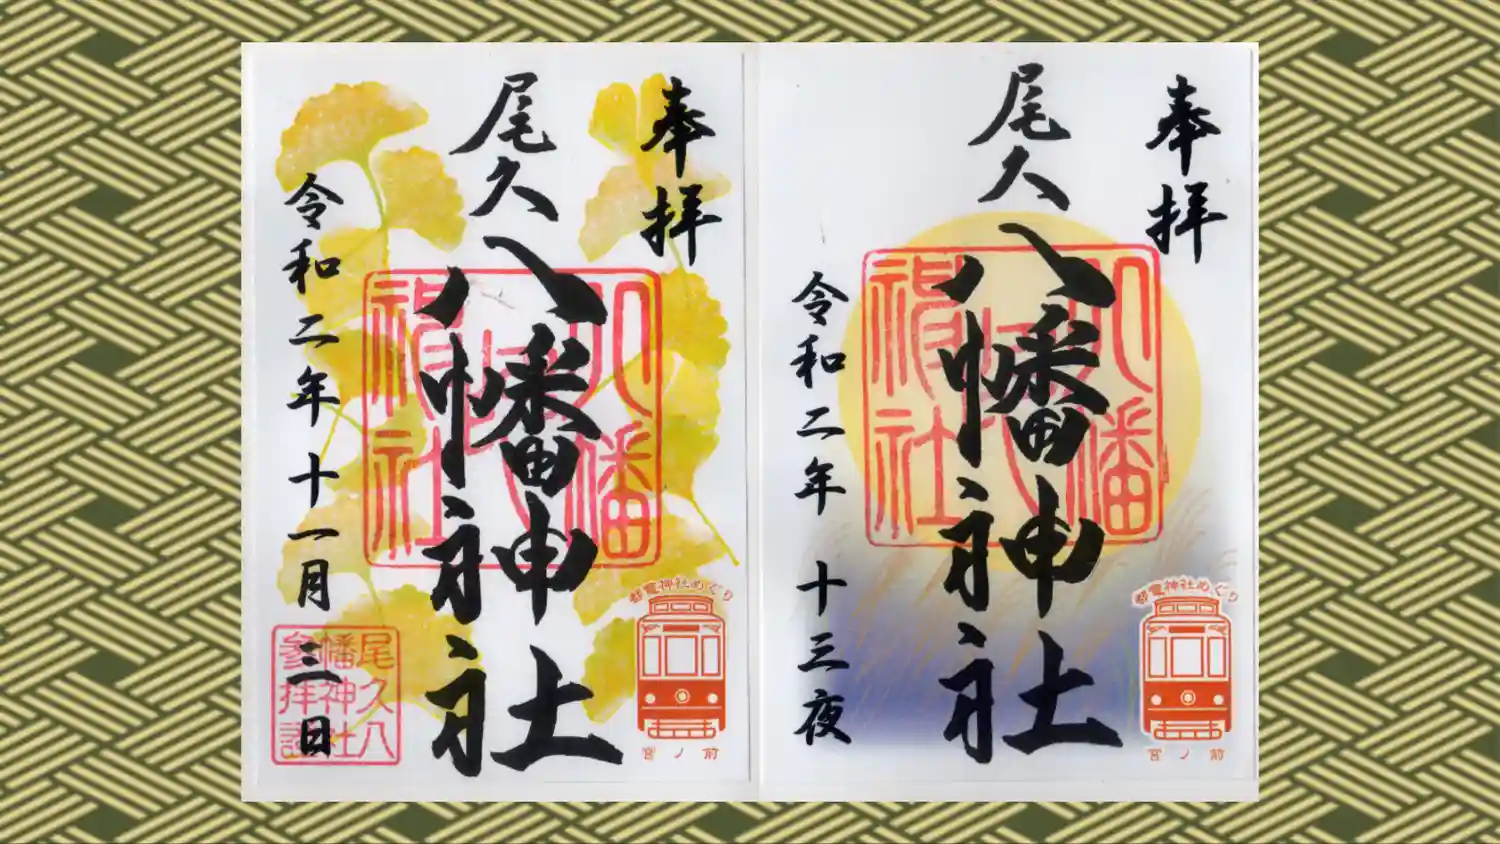 奉拝
尾久
八幡神社
令和二年十一月三日
八幡神社
尾久八
幡神社
参拝証
都電神社めぐり
宮ノ前
奉拝
尾久
八幡神社
令和二年十三夜
八幡神社
都電神社めぐり
宮ノ前